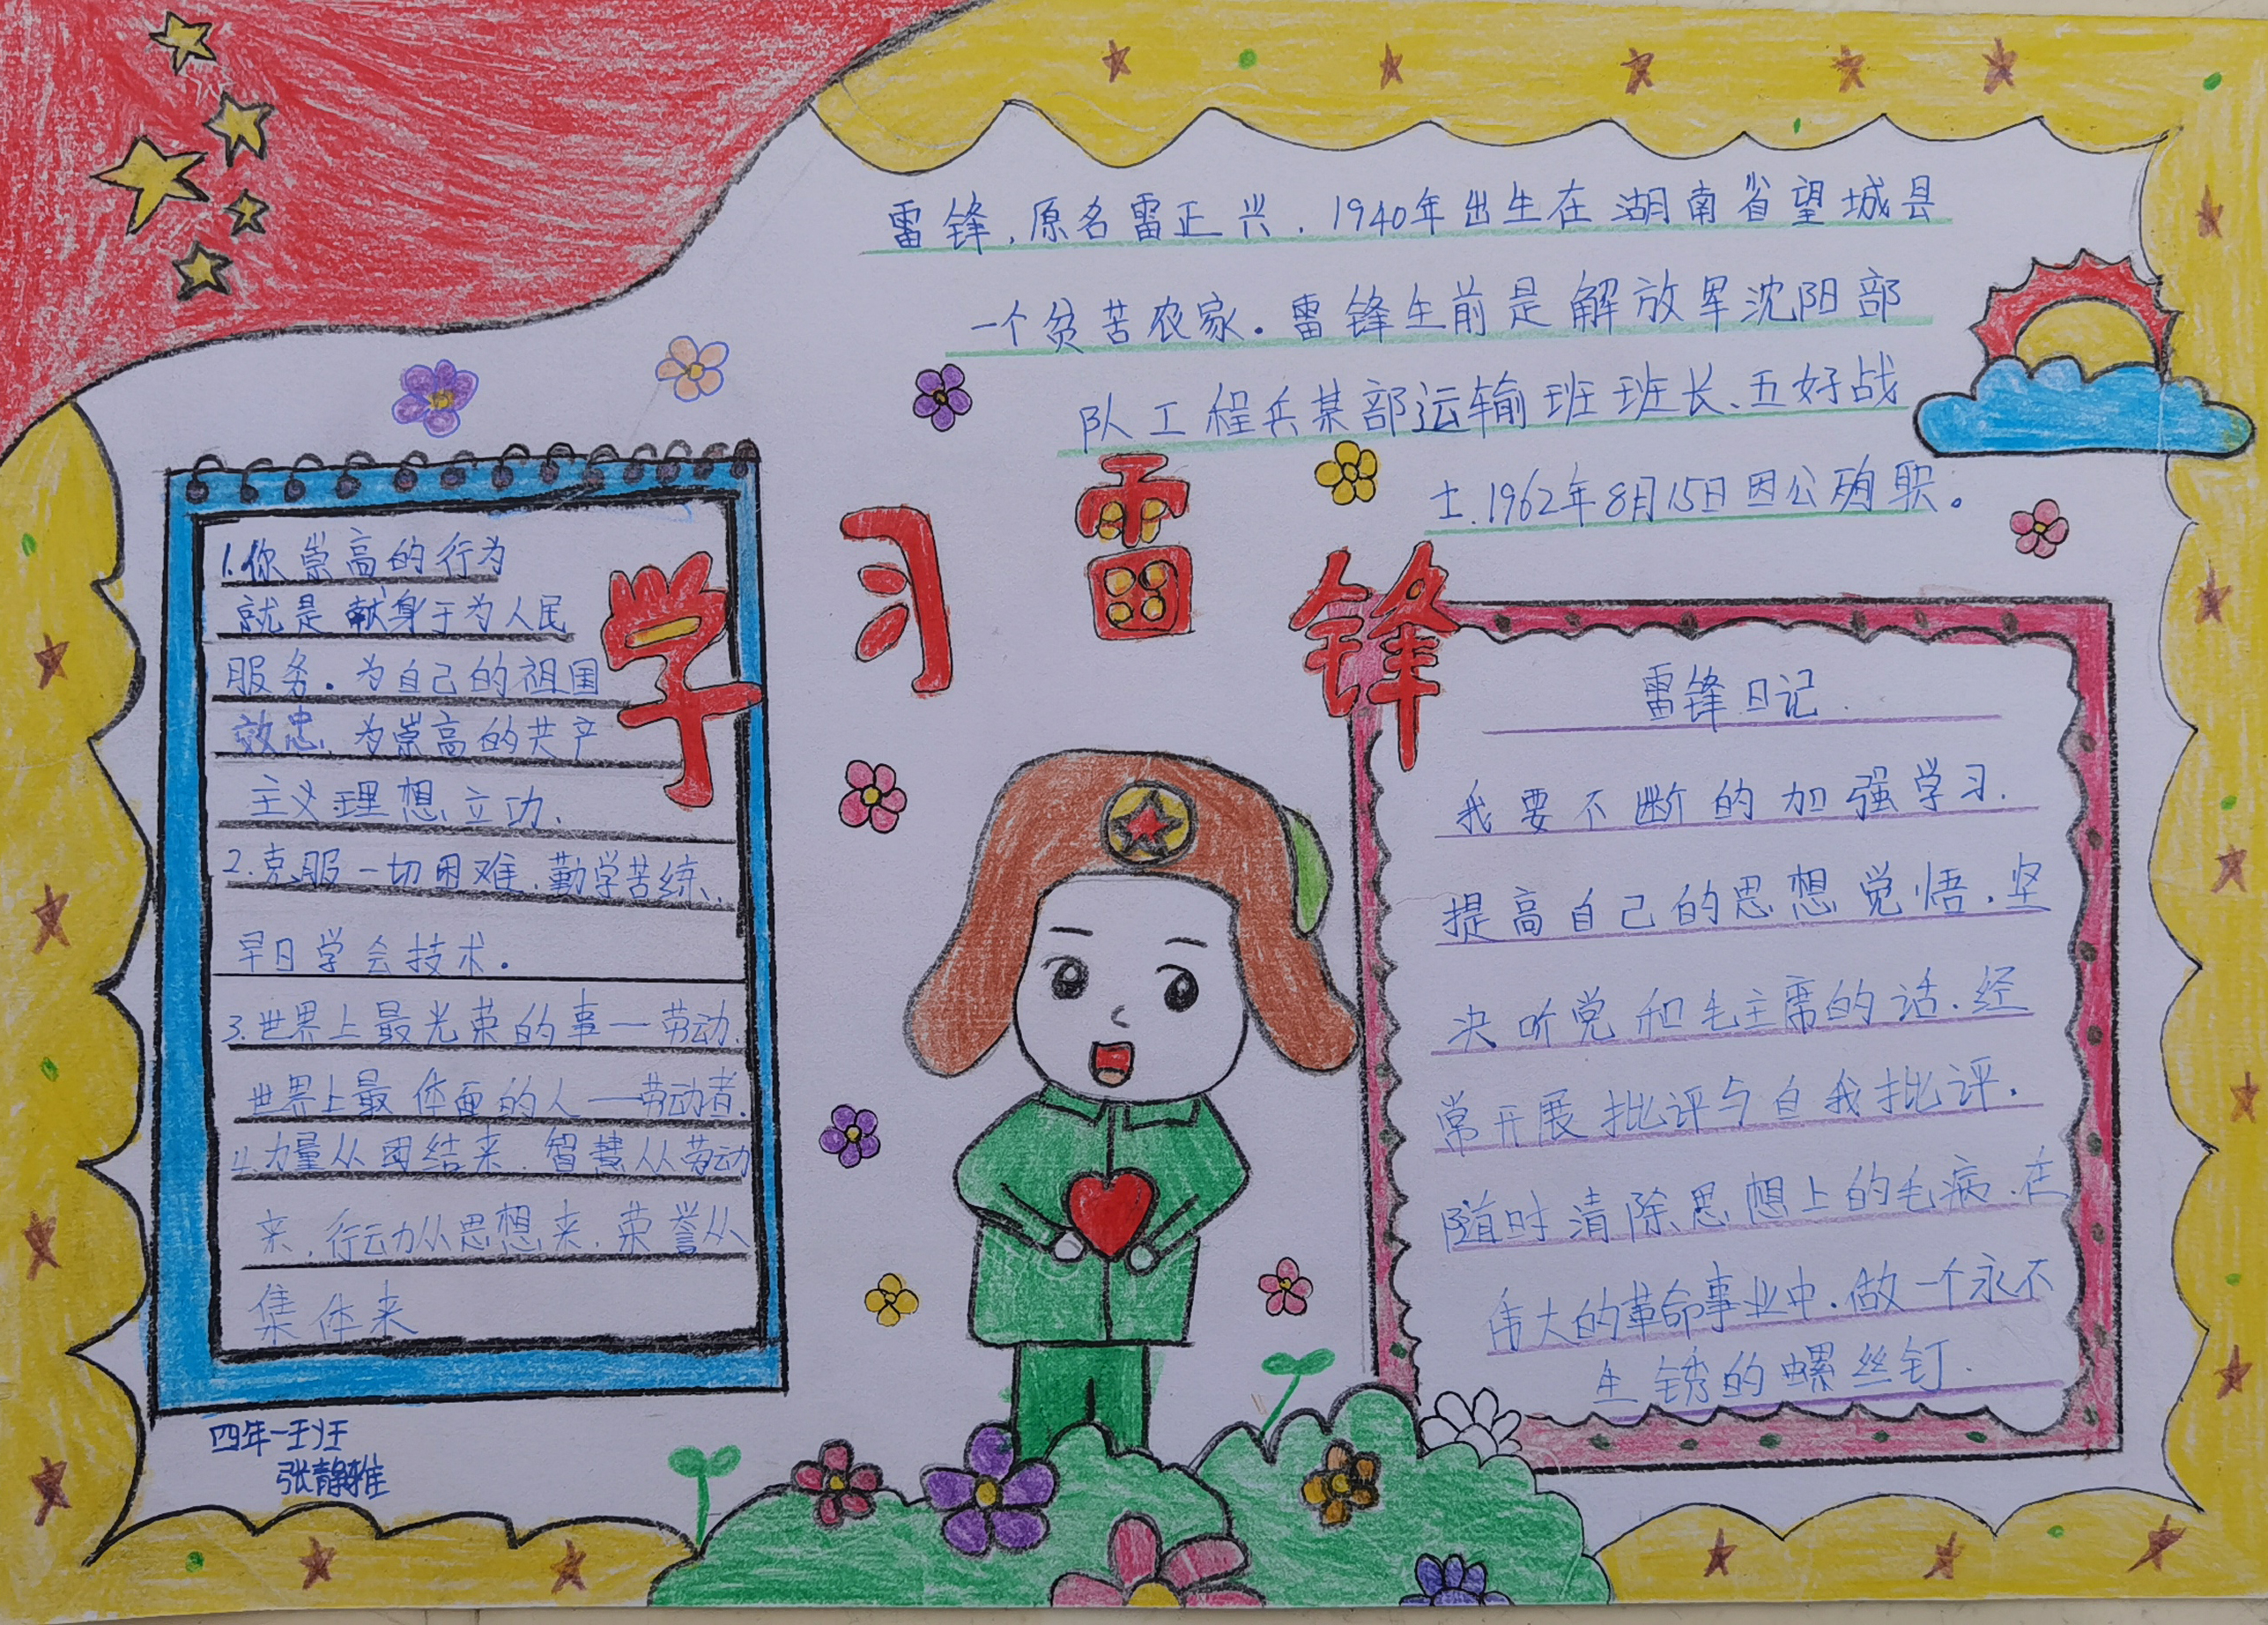 雷锋,原名雷正兴,1940年出生在湖南省望城县
一个贫苦农家。雷锋生前是解放军沈阳部
队工程兵某部运输班班长、五好战
士.1962年8月15日因公殉职。
学习雷锋
1.你崇高的行为
就是献身于为人民
服务。为自己的祖国
效忠,为崇高的共产
主义理想立功、
2.克服一切困难、勤学苦练、
早日学会技术。
3.世界上最光荣的事一劳动.
世界上最体面的人一劳动者.
4.力量从团结来,智慧从劳动
来,行动从思想来,荣誉从
集体来
雷锋日记.
我要不断的加强学习.
提高自己的思想觉悟.坚
决听党和毛主席的话.经
常开展批评与自我批评.
随时清除思想上的毛病.在
伟大的革命事业中.做一个永不
生锈的螺丝钉.
四年一班
张静雅